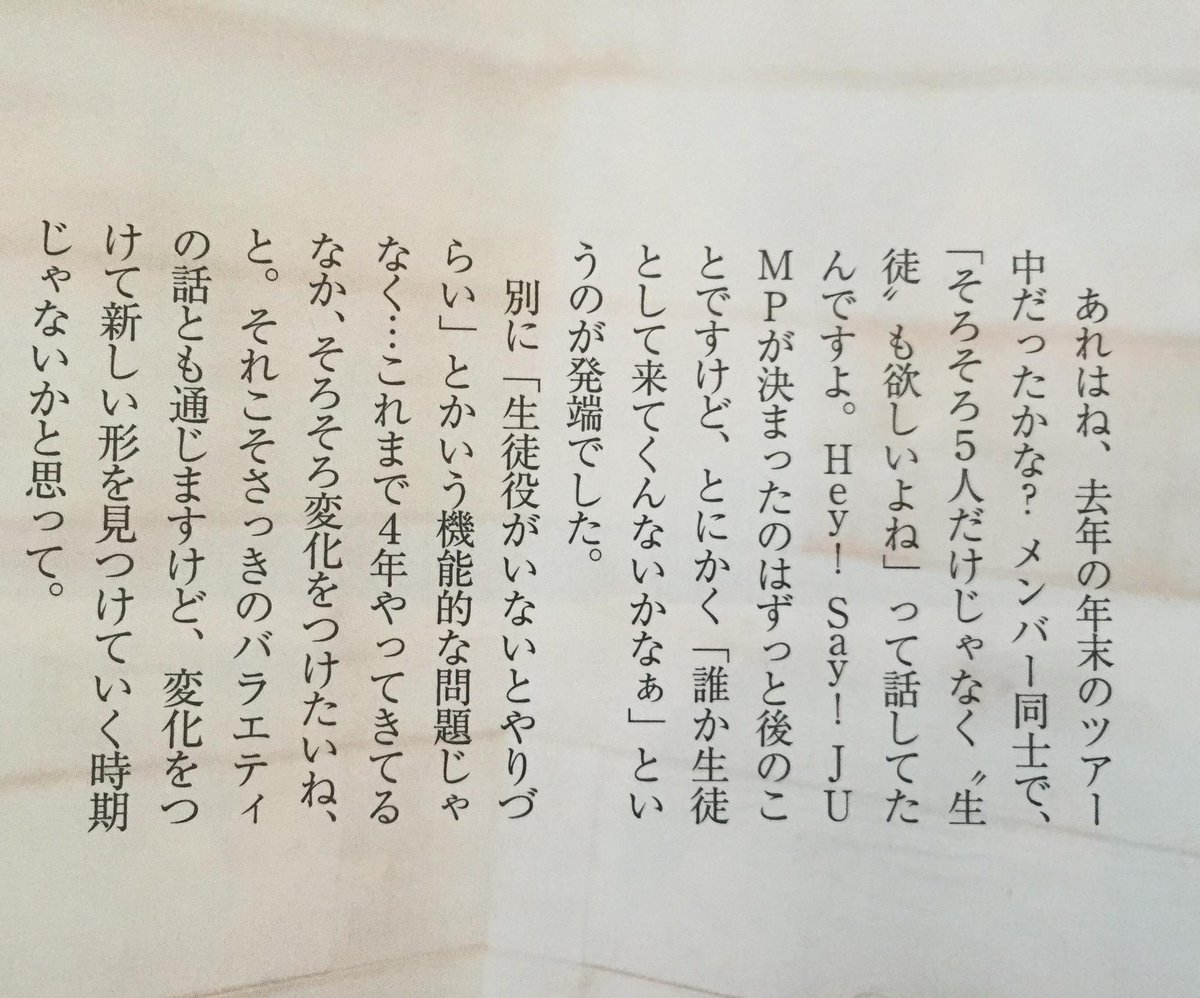 あれはね、去年の年末のツアー
中だったかな? メンバー同士で、
「そろそろ5人だけじゃなく〝生
徒〟も欲しいよね」って話してた
んですよ。Hey! Say! JU
MPが決まったのはずっと後のこ
とですけど、とにかく「誰か生徒
として来てくんないかなぁ」とい
うのが発端でした。
別に「生徒役がいないとやりづ
らい」とかいう機能的な問題じゃ
なく…これまで4年やってきてる
なか、そろそろ変化をつけたいね、
と。それこそさっきのバラエティ
の話とも通じますけど、変化をつ
けて新しい形を見つけていく時期
じゃないかと思って。